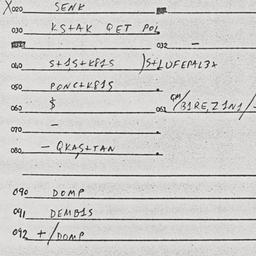 X020 SENK
030 KS+AK QET POL
032 -
040 S+1S+K81S )S+LUFEPAL3A
050 PONC+K81S
060 $ 061 GM/B1RE,Z1N1/-
070 -
080 - QKAS+TAN
090 DOMP
091 DEMB1S
092 +/DOMP